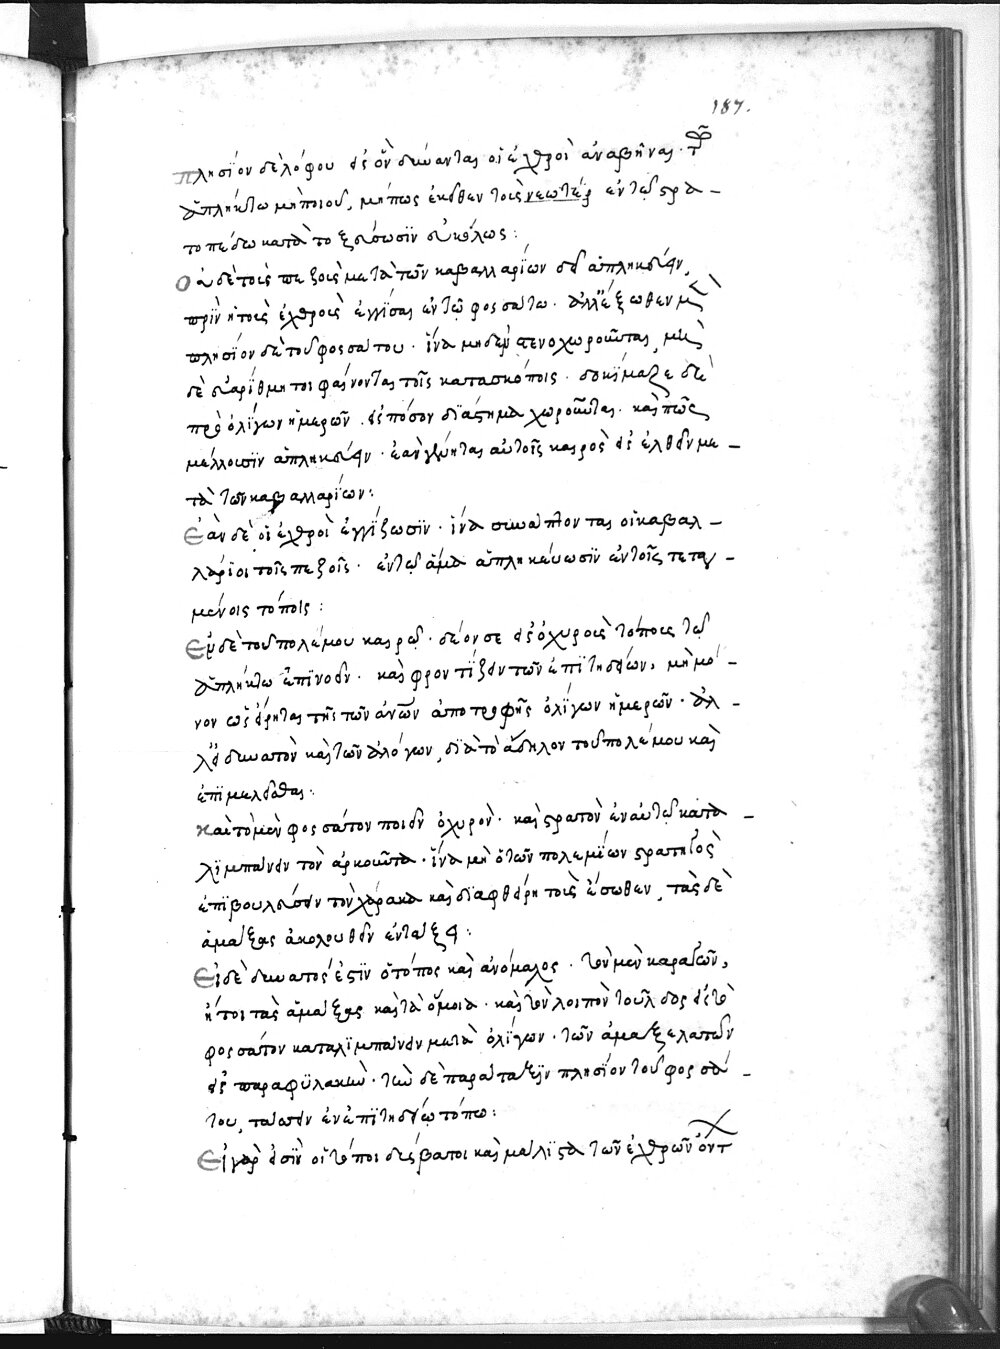 187.
πλησίον δὲ λόφου εἰς ὃν δύνανται οἱ ἐχθροὶ ἀναβῆναι· τὸ
ἄπληκτω μὴ ποιοῦ, μήπως ἐκεῖθεν τοῖς νεωτέρ ἐν τῷ στρα-
τοπέδω κατὰ τοξεύσωσϊν εὐκόλως:
Οὐ δὲ τοῖς πεζοῖς μετὰ τῶν καβαλλαρίων δεῖ ἀπληκεύειν,
πρὶν ἢ τοὺς ἐχθροὺς ἐγγίσαι ἐν τῷ φοσσάτω· ἀλλ' ἔξωθεν μὲν
πλησίον δὲ τοῦ φοσσάτου· ἵνα μηδὲν στενοχωροῦνται, μὴ
δὲ εὐαρίθμητοι φαίνονται τοῖς κατασκόποις· δοκίμαζε δὲ
πρὸ ὀλίγων ἡμερῶν εἰς πόσον διάστημα χωροῦνται· καὶ πῶς
μέλλουσϊν ἀπληκεύειν· ἐὰν γένηται αὐτοῖς καιρὸς εἰσελθεῖν με-
τὰ τῶν καβαλλαρίων:
Ἐὰν δὲ οἱ ἐχθροὶ ἐγγίζωσϊν· ἵνα συνάπτονται οἱ καβαλ-
λάριοι τοῖς πεζοῖς· ἐν τῷ ἅμα ἀπληκεύωσϊν ἐν τοῖς τεταγ-
μένοις τόποις:
Ἐν δὲ τοῦ πολέμου καιρῷ· δέον σε εἰς ὀχυροὺς τόπους τῷ
ἄπληκτω ἐπϊνοεῖν· καὶ φροντίζειν τῶν ἐπϊτηδείων, μὴ μό-
νον ὡς εἴρηται τῆς τῶν ἀνων ἀποτροφῆς ὀλίγων ἡμερῶν· ἀλ-
λ' εἰ δυνατὸν καὶ τῶν ἀλόγων, διὰ τὸ ἄδηλον τοῦ πολέμου καὶ
ἐπϊμελεῖσθαι:
Καὶ τὸ μὲν φοσσάτον ποιεῖν ὀχυρὸν· καὶ στρατὸν ἐν αὐτῷ κατα-
λϊμπάνειν τὸν ἀρκοῦντα· ἵνα μὴ ὁ τῶν πολεμίων στρατηγὸς
ἐπϊβουλεύσειν τὸν χάρακα καὶ διαφθείρη τοὺς ἔσωθεν, τὰς δὲ
ἁμάξας ἀκολουθεῖν ἐν τάξει:
Εἰ δὲ δυνατος ἐστϊν ὁ τόπος καὶ ἀνόμαλος· τὸν μὲν καραγῶν,
ἤτοι τὰς ἁμάξας καὶ τὰ ὅμοια· καὶ τὸν λοιπὸν τοῦλδος εἰς τὸ
φοσσάτον καταλϊμπάνειν μετὰ ὀλίγων· τῶν ἁμαξελατῶν
εἰς παραφϋλακὴν· τὴν δὲ παράταξϊν πλησίον τοῦ φοσσά-
του, τάσσειν ἐν ἐπϊτηδείω τόπω:
Εἰ γὰρ εἰσὶν οἱ τόποι δύσβατοι καὶ μάλϊστα τῶν ἐχθρῶν ὄντ